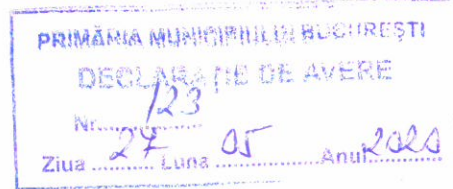 PRIMĂRIA MUNICIPIULUI BUCUREŞTI
DECLARAŢIE DE AVERE
Nr. 123
Ziua 27 Luna 05 Anul 2020